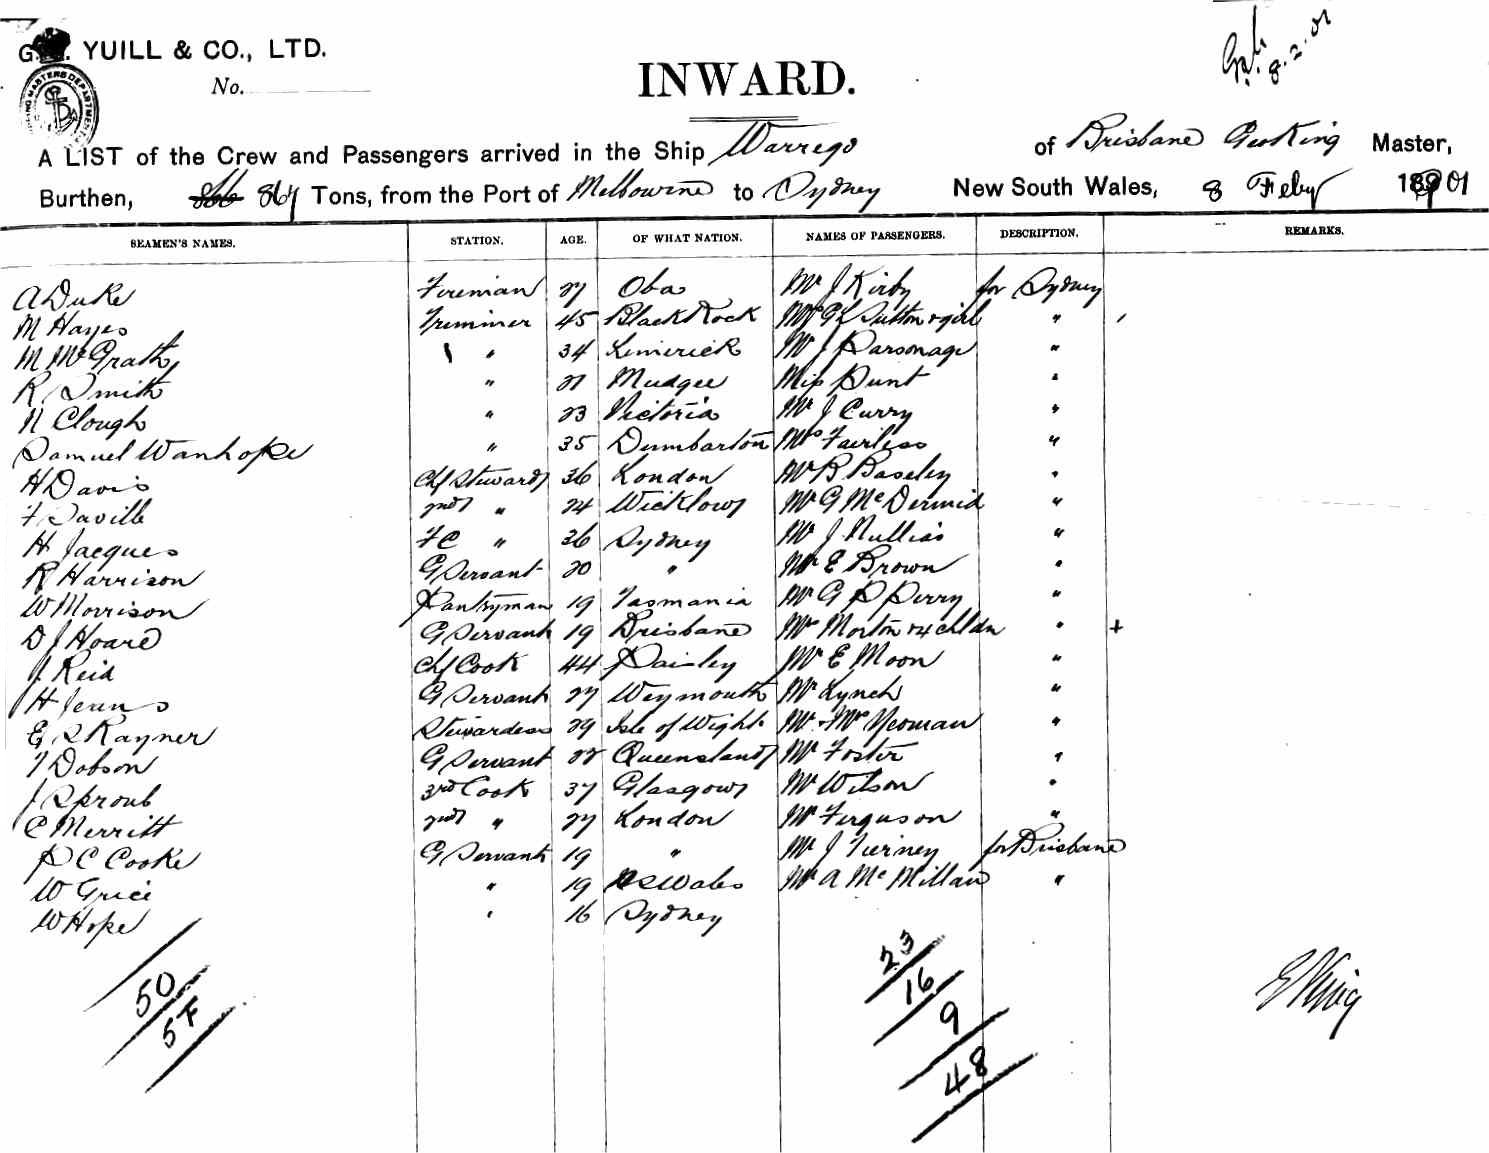 G. YUILL & CO., LTD.
No.
INWARD.
8.2.01
A LIST of the Crew and Passengers arrived in the Ship Warrego of Brisbane Master,
Burthen, 866 864 Tons, from the Port of Melbourne to Sydney New South Wales, 8 Feby 1901
SEAMEN'S NAMES. STATION. AGE. OF WHAT NATION. NAMES OF PASSENGERS. DESCRIPTION. REMARKS.
A Duke Fireman 27 Oba Mr J Kirby for Sydney
M Hayes Trimmer 45 Black Rock Mrs G L Sutton & girl "
M McGrath " 34 Limerick Mr J Parsonage "
R Smith " 27 Mudgee Miss Punt "
N Clough " 23 Victoria Mr J Curry "
Samuel Wanhope " 35 Dumbarton Mrs Fairless "
H Davis Chf Steward 36 London Mr B Baseley "
F Saville 2nd " 24 Wicklow Mr G McDermid "
H Jacques FC " 36 Sydney Mr J Nullis "
R Harrison G Servant 20 " Mr E Brown "
W Morrison Pantryman 19 Tasmania Mr G P Perry "
D J Hoare G Servant 19 Brisbane Mrs Morton & 4 chldn " +
J Reid Chf Cook 44 Paisley Mr E Moon "
H Jenns G Servant 27 Weymouth Mr Lynch "
E S Rayner Stewardess 29 Isle of Wight Mr & Mrs Yeoman "
T Dobson G Servant 22 Queensland Mr Foster "
J Sproul 3rd Cook 37 Glasgow Mr Wilson "
C Merritt 2nd " 27 London Mr Ferguson "
P C Cooke G Servant 19 " Mr J Tierney for Brisbane
W Grice " 19 N S Wales Mr A McMillan "
W Hope " 16 Sydney
50
54
23
16
9
48
E King